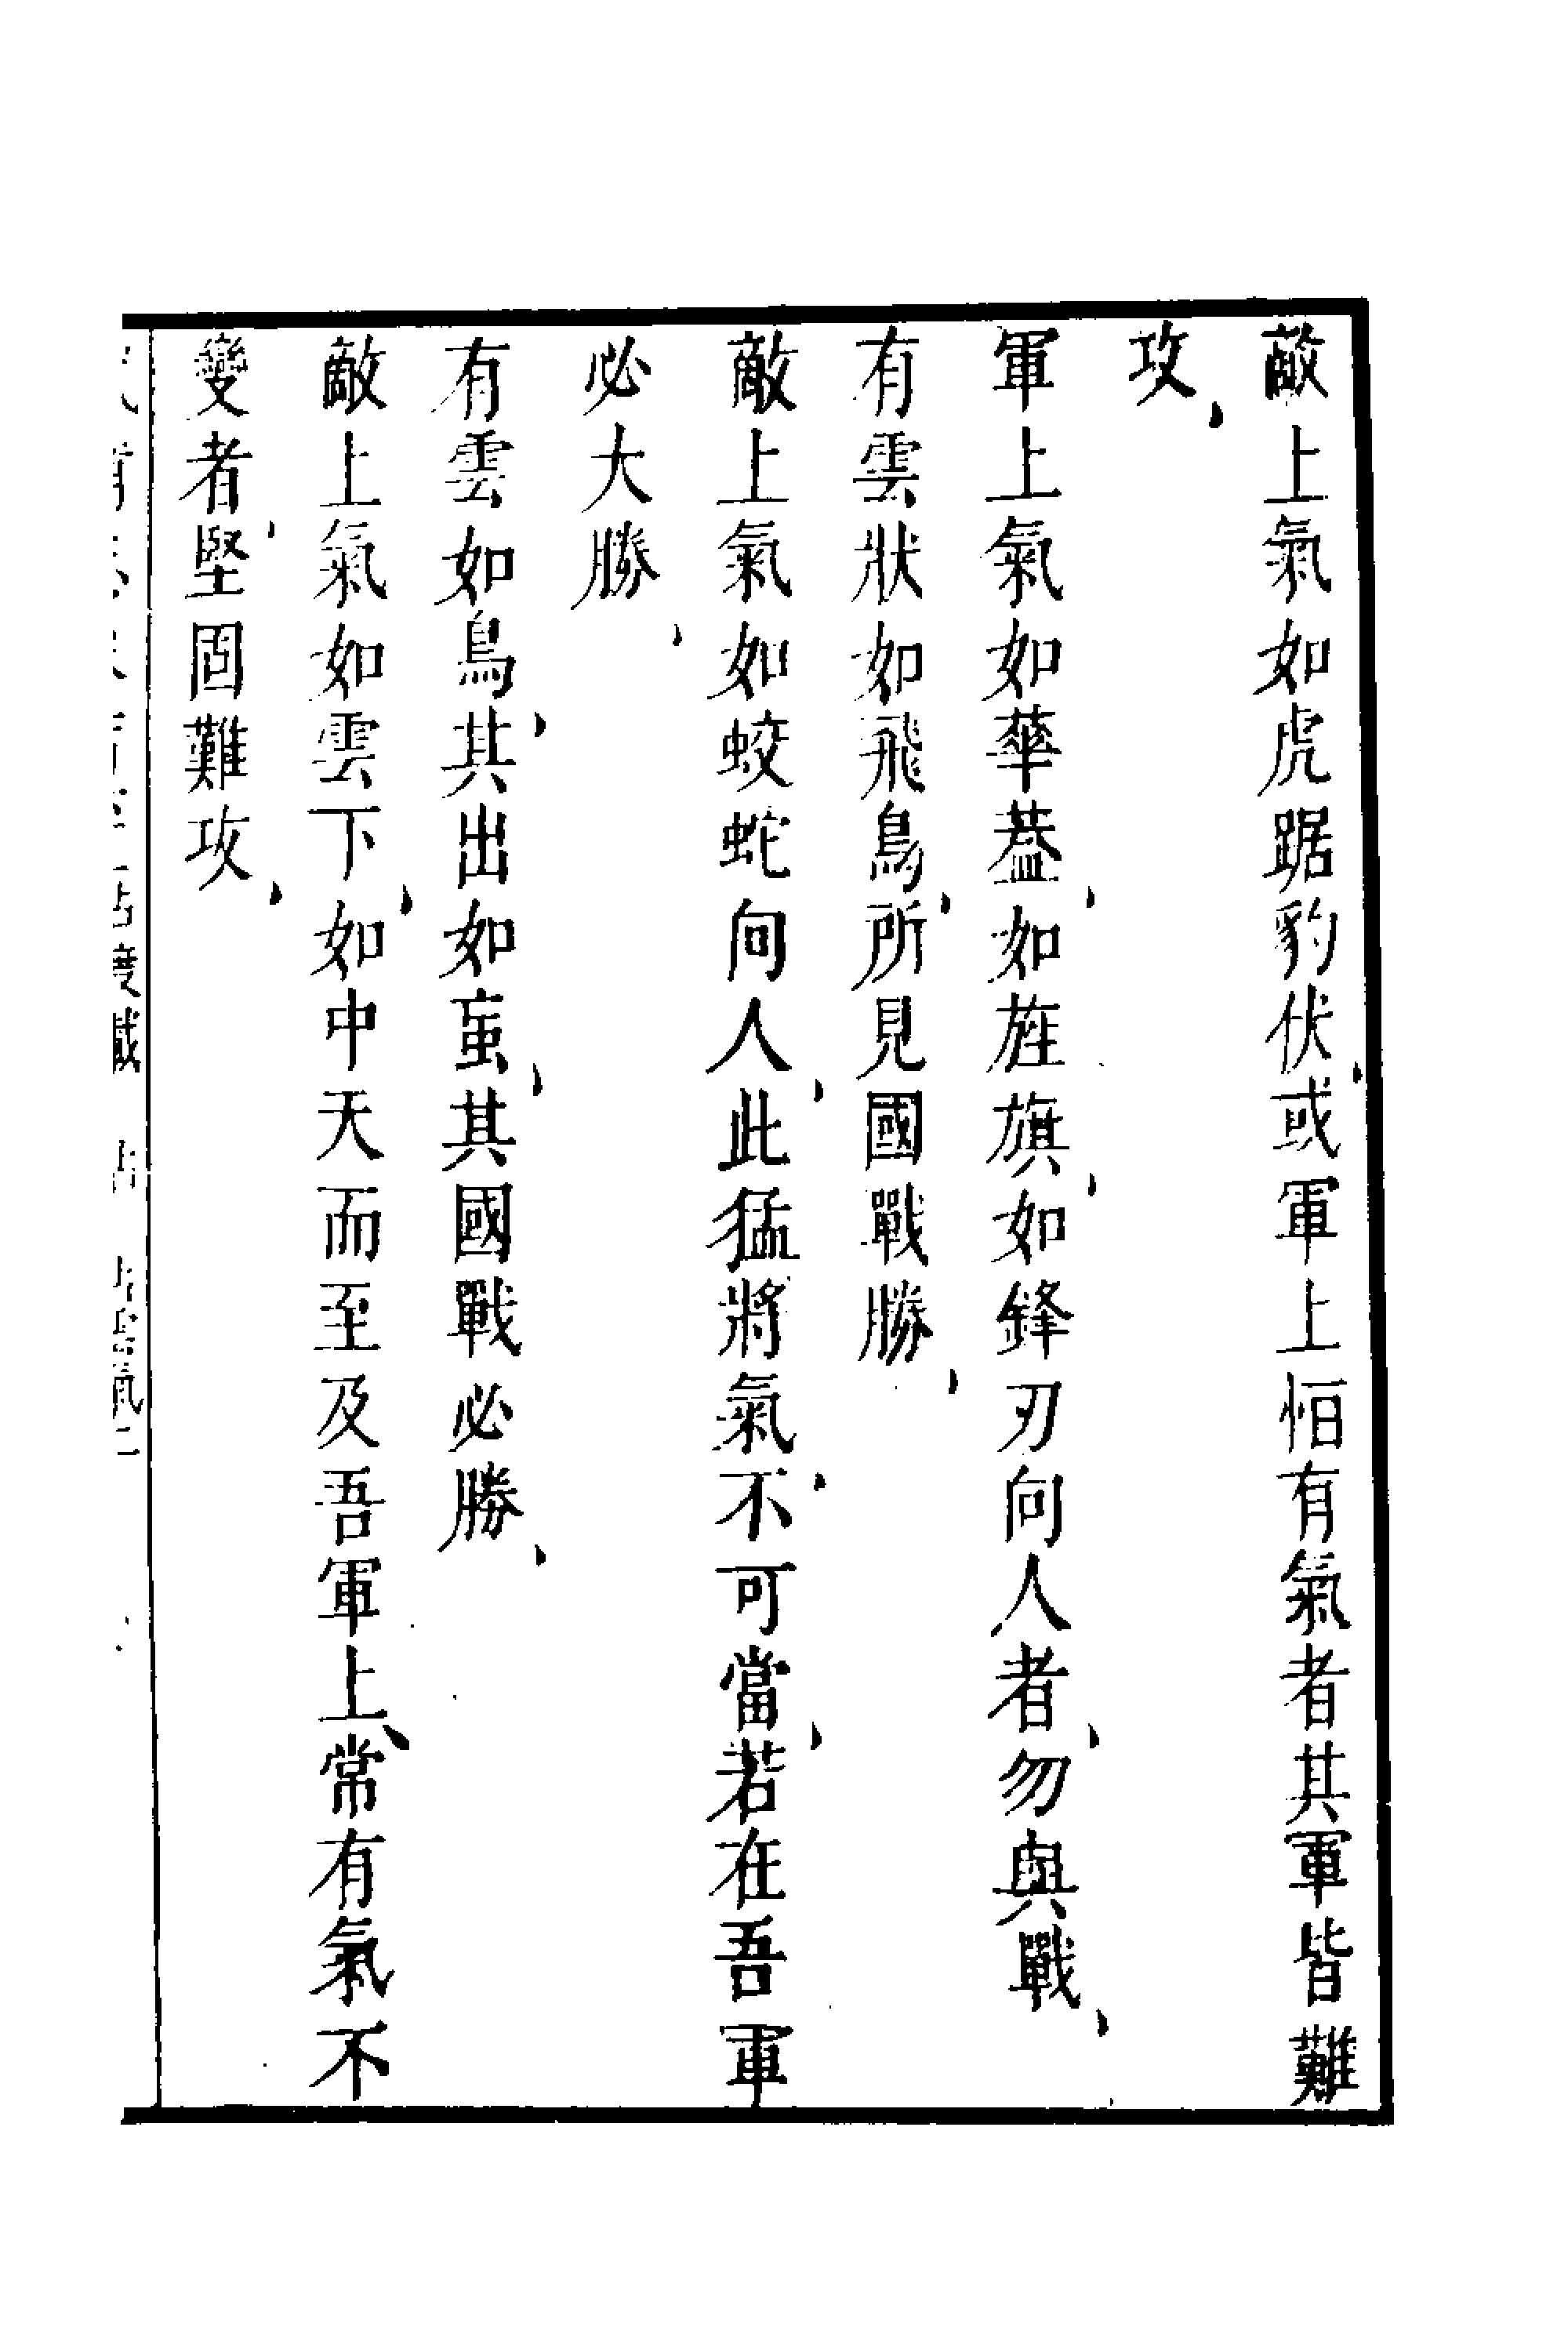 敵上氣如虎踞豹伏、或軍上恒有氣者其軍皆難
攻、
軍上氣如華蓋、如旌旗、如鋒刃向人者、勿與戰、
有雲狀如飛鳥、所見國戰勝、
敵上氣如蛟蛇向人、此猛將氣、不可當、若在吾軍
必大勝、
有雲如鳥、其出如䖟、其國戰必勝、
敵上氣如雲下、如中天而至及吾軍上、常有氣不
變者、堅固難攻、
占雲氣二